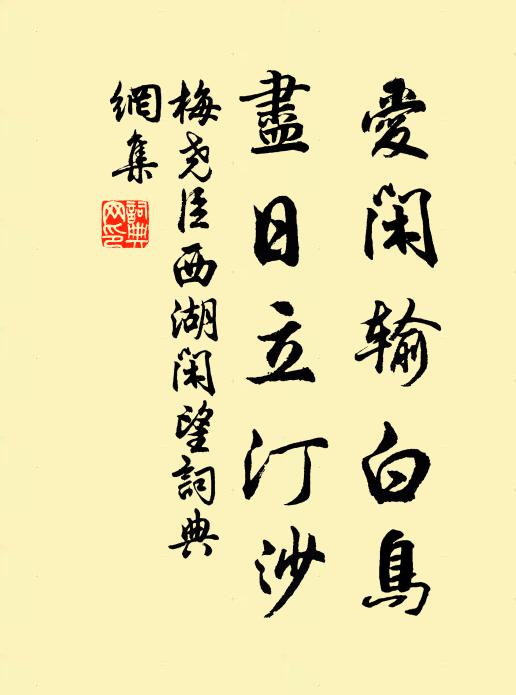 愛閑輸白鳥
盡日立汀沙
梅尭臣西湖閑望詞典
網集
詞典網印